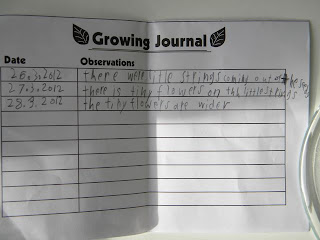 Growing Journal
Date Observations
26.3.2012 there were little strings coming out of the seeds
27.3.2012 there is tiny flowers on the little strings
28.3.2012 the tiny flowers are wider